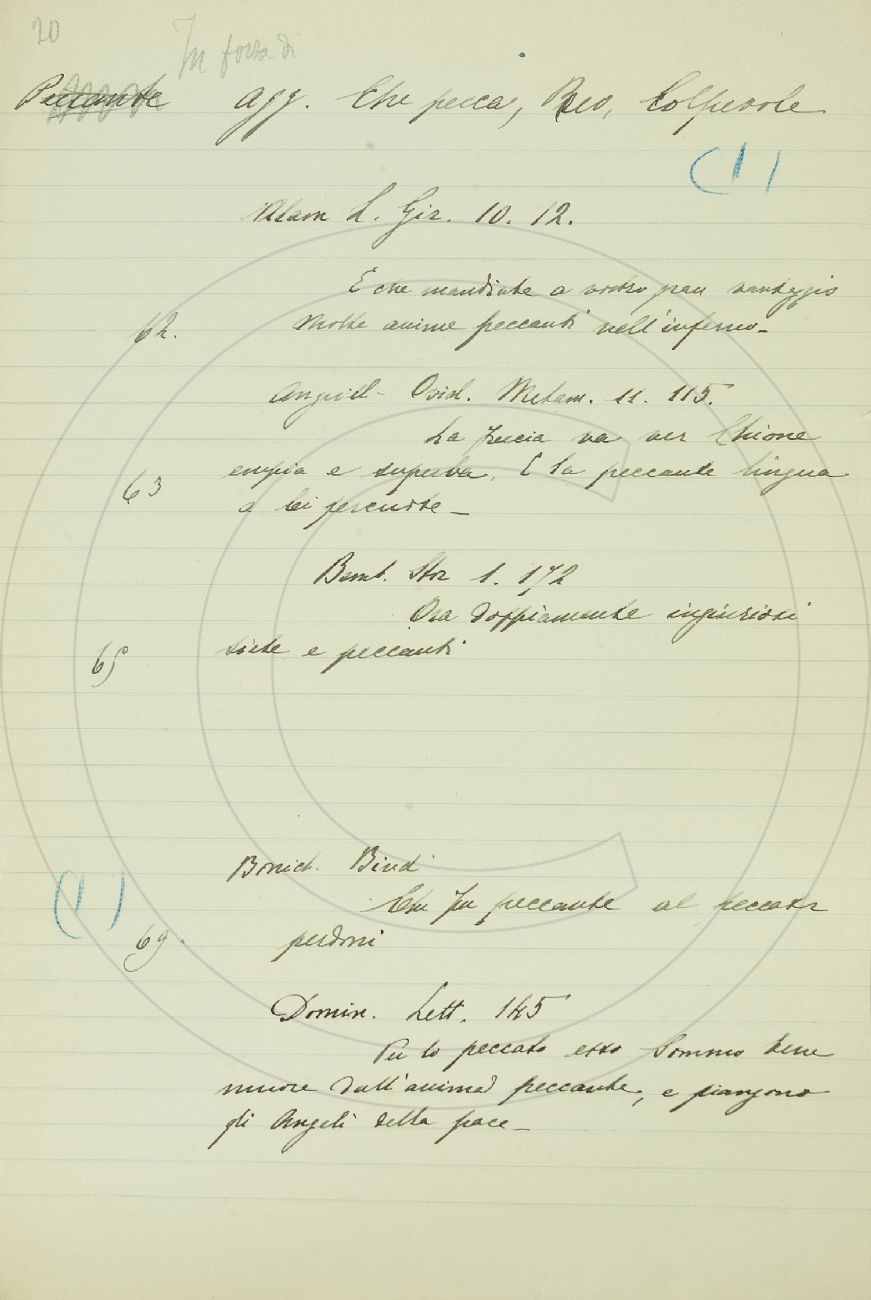 20
In forza di
Peccante agg. Che pecca, Reo, Colpevole
(1)
Alam L. Gir. 10. 12.
E che mandiate a vostro gran vantaggio
62. Molte anime peccanti nell'inferno.
Anguill. Ovid. Metam. 11. 115.
La freccia va ver Chione
63 empia e superba, E la peccante lingua
a lei percuote
Bemb. Stor 1. 172
Ora doppiamente ingiuriosi
65 siete e peccanti
Bonich. Bind
(1) Che fu peccante al peccator
69. perdoni
Domin. Lett. 145
Per lo peccato esso Sommo bene
muore dall'anima peccante, e piangono
gli Angeli della pace